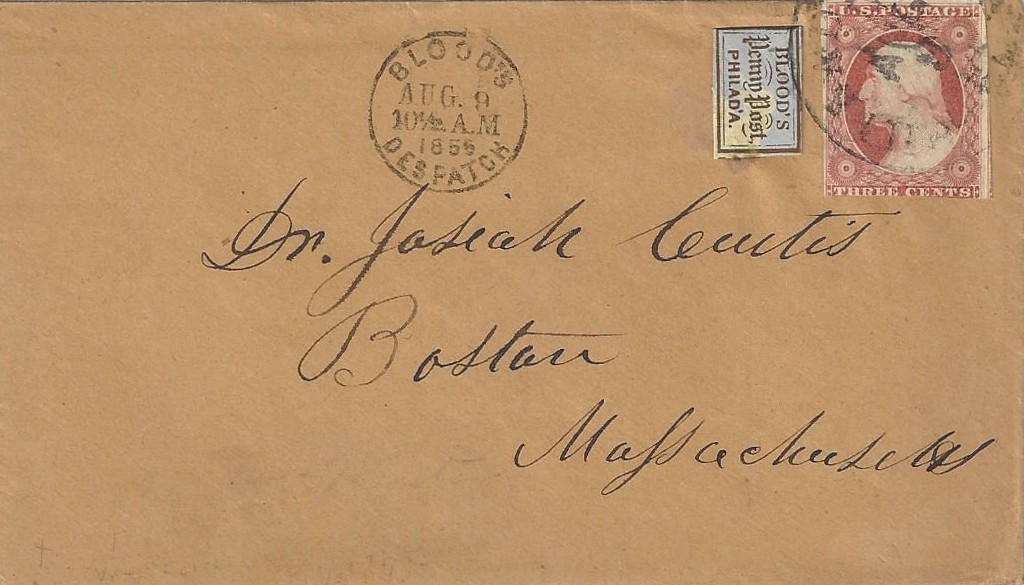 BLOOD'S
AUG. 9
10½ A.M
1855
DESPATCH
BLOOD'S
Penny Post,
PHILAD'A.
U.S. POSTAGE
THREE CENTS
Dr. Josiah Curtis
Boston
Massachusetts